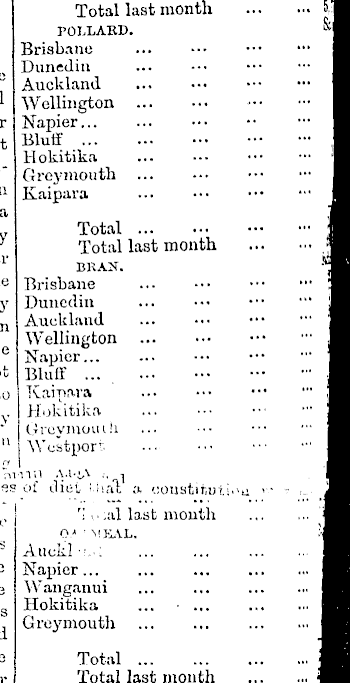 Total last month ... ...
POLLARD.
Brisbane ... ... ... ...
Dunedin ... ... ... ...
Auckland ... ... ... ...
Wellington ... ... ... ...
Napier... ... ... .. ...
Bluff ... ... ... ... ...
Hokitika ... ... ... ...
Greymouth ... ... ... ...
Kaipara ... ... ... ...
Total ... ... ... ...
Total last month ... ...
BRAN.
Brisbane ... ... ... ...
Dunedin ... ... ... ...
Auckland ... ... ... ...
Wellington ... ... ... ...
Napier... ... ... ... ...
Bluff ... ... ... ... ...
Kaipara ... ... ... ...
Hokitika ... ... ... ...
Greymouth ... ... ... ...
Westport ... ... ... ...
es of diet that a constitution
Total last month ... ...
OATMEAL.
Auckl ... ... ... ...
Napier... ... ... ... ...
Wanganui ... ... ... ...
Hokitika ... ... ...
Greymouth ... ... ... ...
Total ... ... ... ...
Total last month ... ...